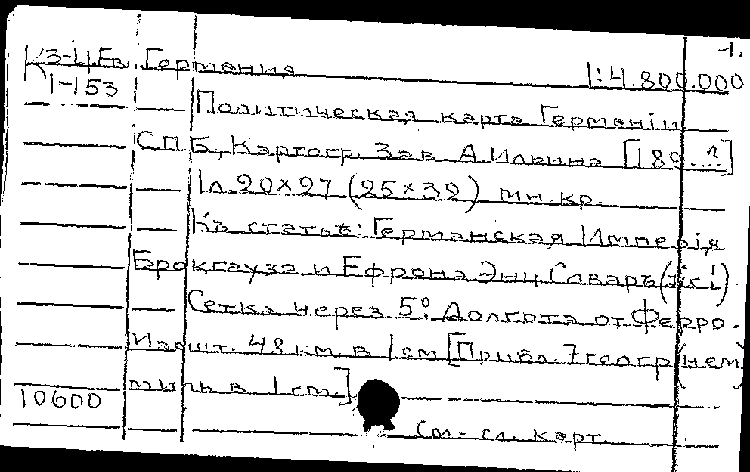 1.
К3-4Ев Германия 1:4.800.000
1-153
Политическая карта Германіи
СПБ, Картогр. Зав. А. Ильина [189..?]
1 л. 20×27 (25×32) мн. кр.
Къ статьѣ: Германская Имперія
Брокгауза и Ефрона Энц. Словарь
Сетка через 5°. Долгота от Ферро.
Масшт. 48 км. в 1 см [Прибл. 7 геогр (нем)
миль в 1 см.]
10600
См. сл. карт.